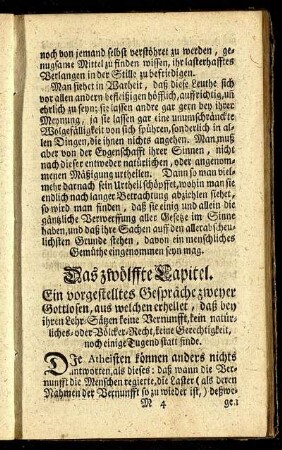 noch von jemand selbst verstöhret zu werden, ge-
nugsame Mittel zu finden wissen, ihr lasterhafftes
Verlangen in der Stille zu befriedigen.
Man siehet in Warheit, daß diese Leuthe sich
vor allen andern befleißigen höfflich, auffrichtig, und
ehrlich zu seyn; sie lassen andre gar gern bey ihrer
Meynung, ja sie lassen gar eine unumschränckte
Wolgefälligkeit von sich spühren, sonderlich in al-
len Dingen, die ihnen nichts angehen. Man muß
aber von der Eygenschafft ihrer Sinnen, nicht
nach dieser entweder natürlichen, oder angenom-
menen Mäßigung urtheilen. Dann so man viel-
mehr darnach sein Urtheil schöpffet, wohin man sie
endlich nach langer Betrachtung abziehlen siehet,
so wird man finden, daß sie einig und allein die
gäntzliche Verwerffung aller Gesetze im Sinne
haben, und daß ihre Sachen auff den allerabscheu-
lichsten Grunde stehen, davon ein menschliches
Gemüthe eingenommen seyn mag.
Das zwölffte Capitel.
Ein vorgestelltes Gespräche zweyer
Gottlosen, aus welchen erhellet, daß bey
ihren Lehr-Sätzen keine Vernunfft, kein natür-
liches- oder Völcker-Recht, keine Gerechtigkeit,
noch einige Tugend statt finde.
DIe Atheisten können anders nichts
antworten, als dieses: daß wann die Ver-
nunfft die Menschen regierte, die Laster (als deren
Nahmen der Vernunfft so zu wieder ist,) deßwe-
M 4 gen